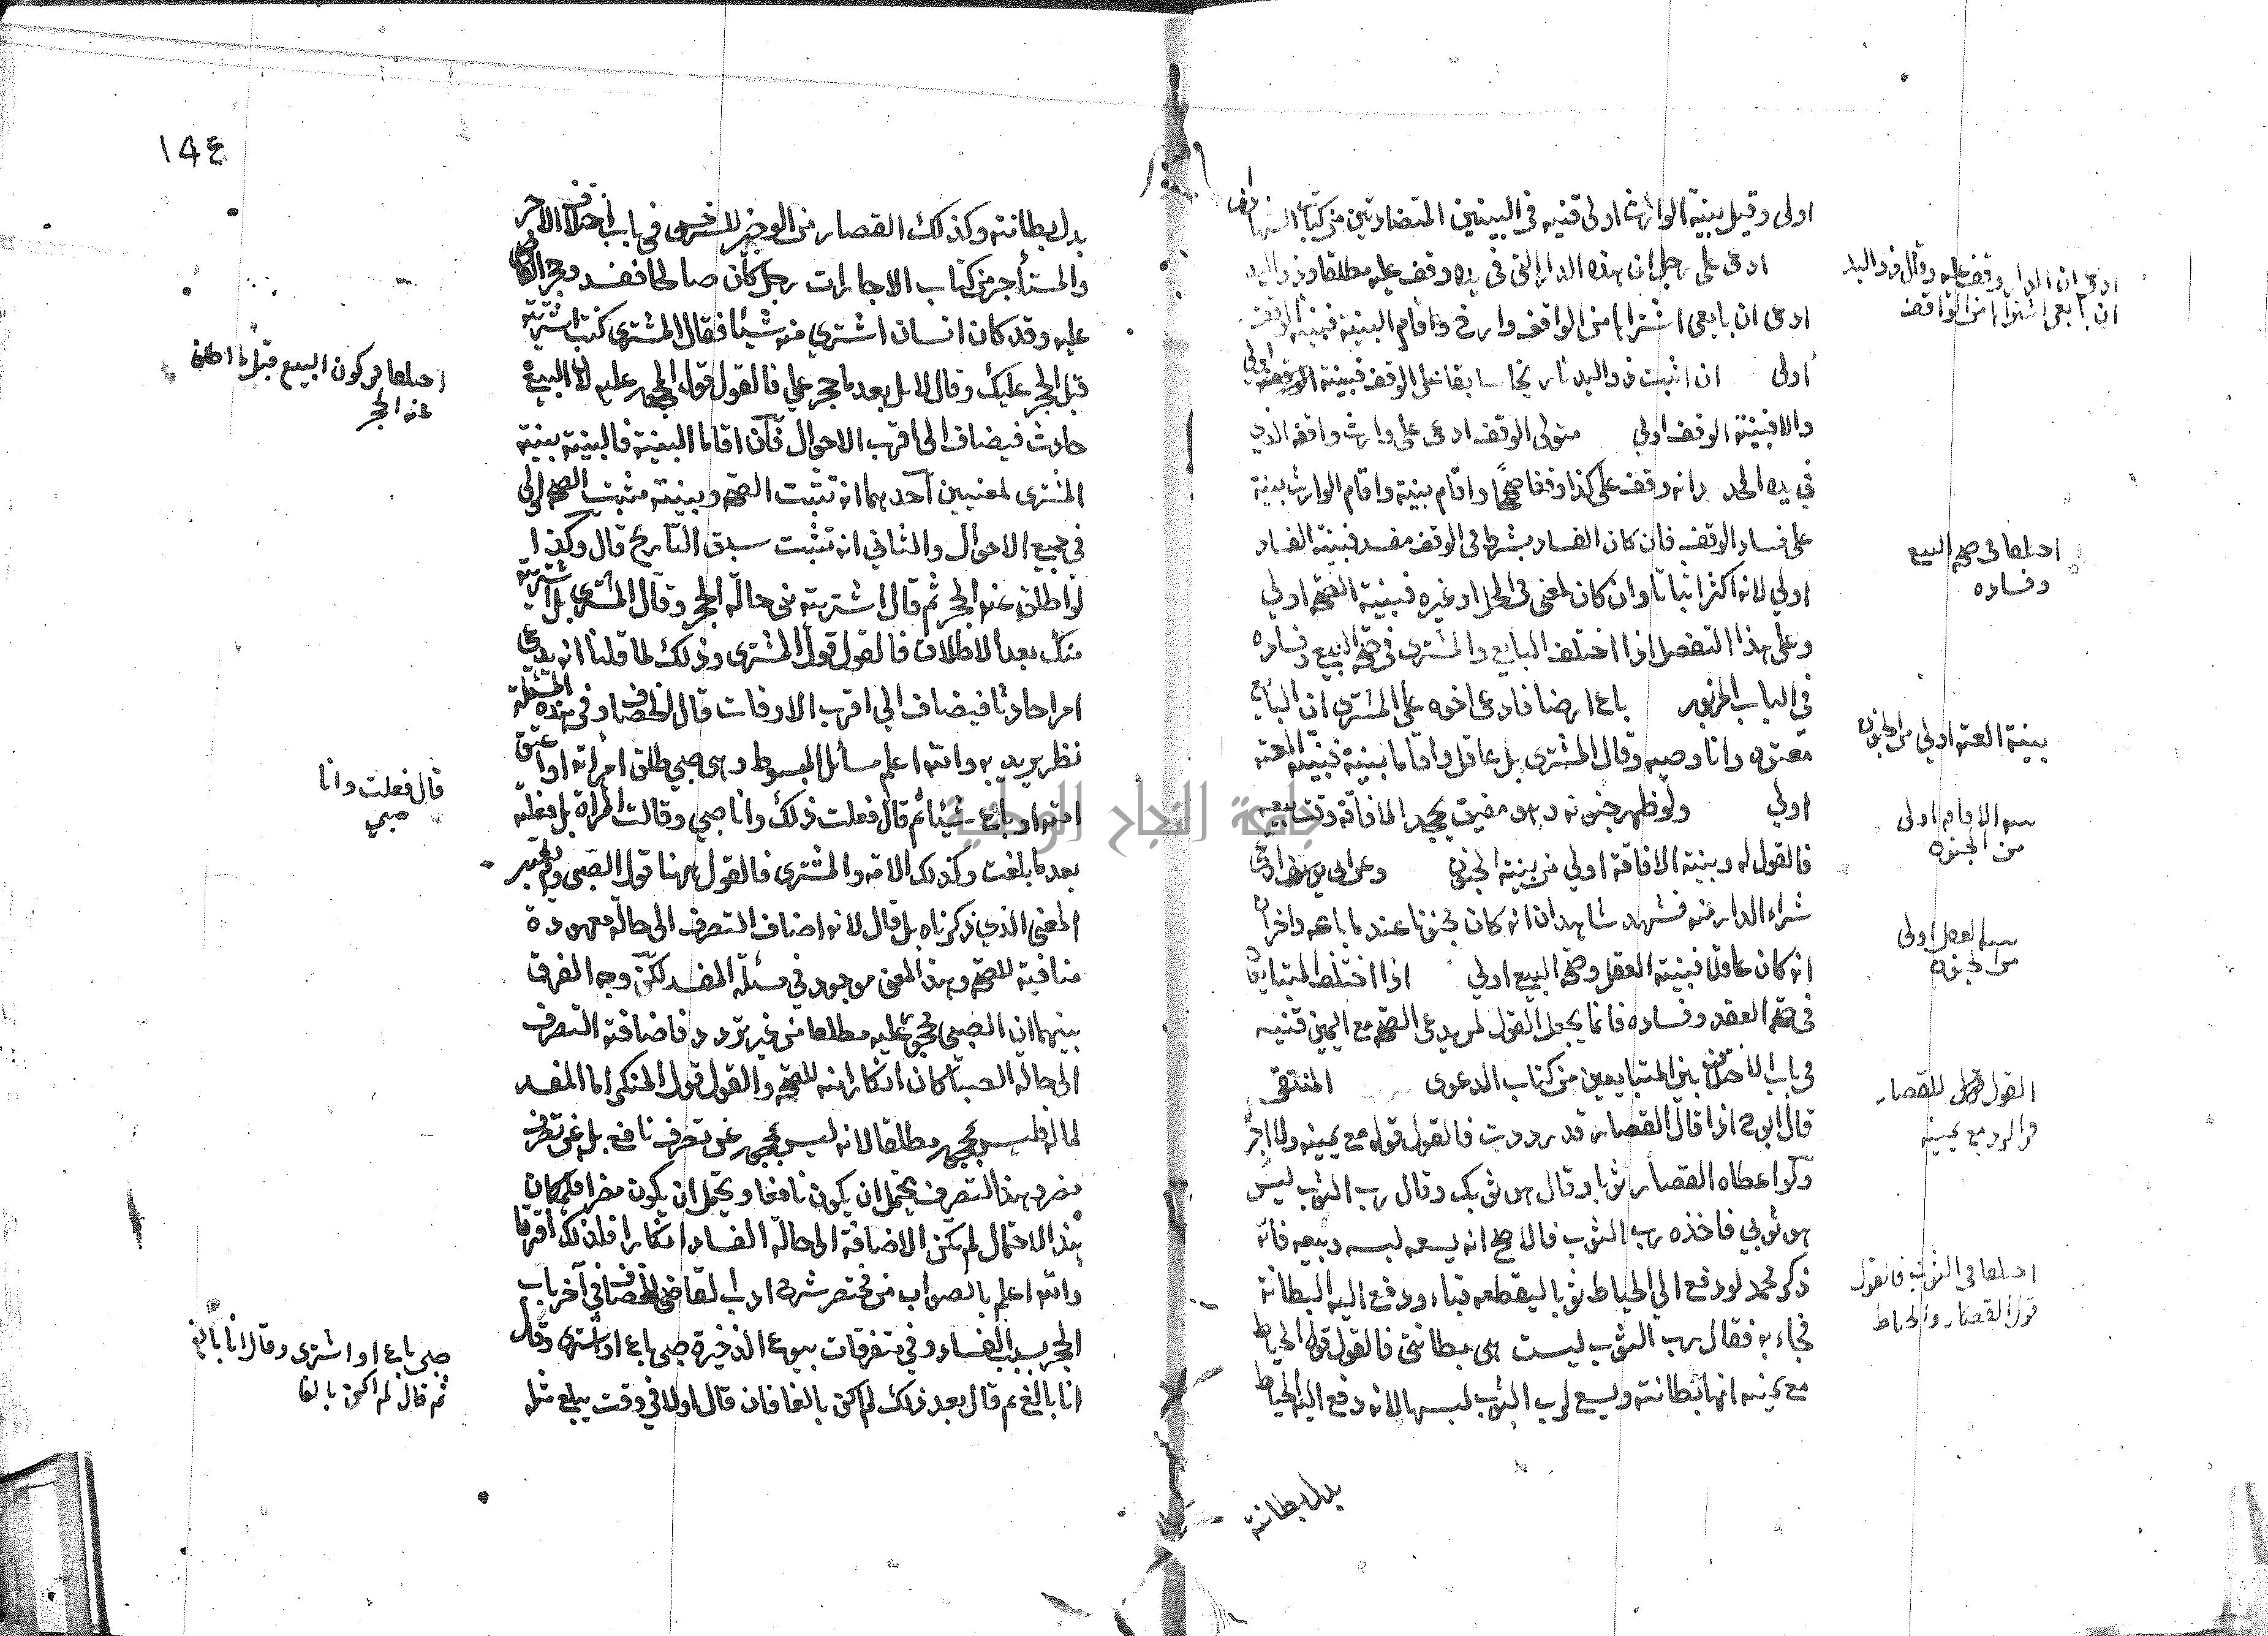 اولى وقيل بينة الوارث اولى قنيه فى البينتين المتضادتين من كتاب الشهادات
ادعى على رجل ان هذه الدار التى فى يده وقف عليه مطلقا وذو اليد
ادعى ان بايعى اشتراها من الواقف وارخ واقام البينة فبينة الوقف
اولى ان اثبت ذو اليد تاريخا سابقا على الوقف فبينته اولى
والا فبينة الوقف اولى متولى الوقف ادعى على وارث واقفه الذي
في يده المحدود انه وقف على كذا وقفا صحيحا واقام بينة واقام الوارث بينة
على فساد الوقف فان كان الفساد بشرط فى الوقف مفسد فبينة الفساد
اولي لانه اكثر اثباتا وان كان لمعنى فى المحل او غيره فبينة الصحة اولي
وعلى هذا التفصيل اذا اختلف البايع والمشترى فى صحة البيع وفساده
فى الباب المزبور باع ارضا فادعى اخوه على المشترى ان البايع
معتوه وانا وصيه وقال المشترى بل عاقل واقاما بينة فبينة العته
اولي ولو ظهر جنونه وهو مفيق يجحد الافاقة وقت بيعه
فالقول له وبينة الافاقة اولي من بينة الجنون وعن ابي يوسف ادعى
شراء الدار منه فشهد شاهدان انه كان مجنونا عند ما باعه واخران
انه كان عاقلا فبينة العقل وصحة البيع اولي اذا اختلف المتبايعان
فى صحة العقد وفساده فانما يجعل القول لمن يدعى الصحة مع اليمين قنيه
فى باب الاختلاف بين المتبايعين من كتاب الدعوى المنتقى
قال ابو ح اذا قال القصار قد رددت فالقول قوله مع يمينه ولا اجر
ولو اعطاه القصار ثوبا وقال هو ثوبك وقال رب الثوب ليس
هو ثوبي فاخذه رب الثوب فالاصح انه يسعه لبسه وبيعه فانه
ذكر محمد لو دفع الي الخياط ثوبا ليقطعه قباء ودفع اليه البطانة
فجاء به فقال رب الثوب ليست هى بطانتى فالقول قول الخياط
مع يمينه انها بطانته ويسع لرب الثوب لبسها لانه دفع اليه الخياط
بدل بطانته
ادعى ان الدار وقف عليه وقال ذو اليد
ان بايعى اشتراها من الواقف
اختلفا فى صحة البيع
وفساده
بينة العته اولى من الجنون
بينة الافاقة اولى
من الجنون
بينة العقل اولى
من الجنون
القول قول للقصار
فى الرد مع يمينه
اختلفا فى الثوب فالقول
قول القصار والخياط
١٩٤
بدل بطانته وكذلك القصار من الوجيز للسرخسى فى باب اختلاف الاجر
والمستأجر من كتاب الاجارات رجل كان صالحا ففسد وحجر القاضى
عليه وقد كان انسان اشترى منه شيئا فقال المشترى كنت اشتريته
قبل الحجر عليك وقال لا بل بعد ما حجر علي فالقول قول المحجور عليه لان البيع
حادث فيضاف الى اقرب الاحوال فان اقاما البينة فالبينة بينة
المشترى لمعنيين احدهما انه تثبت الصحة وبينة مثبت الصحة اولى
فى جميع الاحوال والثانى انه تثبت سبق التاريخ قال وكذا
لو اطلق عنه الحجر ثم قال اشتريته فى حالة الحجر وقال المشترى بل اشتريته
منك بعد الاطلاق فالقول قول المشترى وذلك لما قلنا انه يدعى
امرا حادثا فيضاف الي اقرب الاوقات قال الخصاف وفى هذه المسئلة
نظر يريد به والله اعلم مسائل المبسوط وهى صبى طلق امراته او اعتق
امته او باع شيئا ثم قال فعلت ذلك وانا صبي وقالت المراة بل فعلته
بعد ما بلغت وكذلك الامة والمشترى فالقول ههنا قول الصبى ولم يعتبر
المعنى الذي ذكرناه بل قال لانه اضاف التصرف الى حالة معهودة
منافية للصحة وهذا المعنى موجود فى مسئلة المفسد لكن وجه الفرق
بينهما ان الصبى محجور عليه مطلقا من غير تردد فاضافة التصرف
الى حالة الصبا كان انكارا منه للصحة والقول قول المنكر اما المفسد
لماله فليس بمحجور مطلقا لانه ليس بمحجور عن تصرف نافع بل عن تصرف
مضر وهذا التصرف يحتمل ان يكون نافعا ويحتمل ان يكون مضرا فلمكان
هذا الاحتمال لم يكن الاضافة الى حالة الفساد انكارا فلذلك افترقا
والله اعلم بالصواب من مختصر شرح ادب القاضى للخصاف فى آخر باب
الحجر بسبب الفساد وفى متفرقات بيوع الذخيرة صبى باع او اشترى وقال
انا بالغ ثم قال بعد ذلك لم اكن بالغا فان قال اولا فى وقت يبلغ مثله
اختلفا فى كون البيع قبل الاطلاق
عنه الحجر
قال فعلت وانا
صبي
صبى باع او اشترى وقال انا بالغ
ثم قال لم اكن بالغا
جامعة النجاح الوطنية